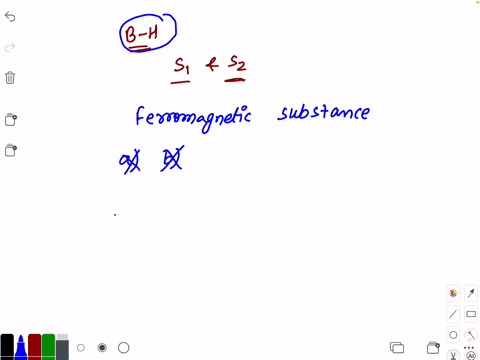 B-H
S1 & S2
Ferromagnetic substance
a) b)